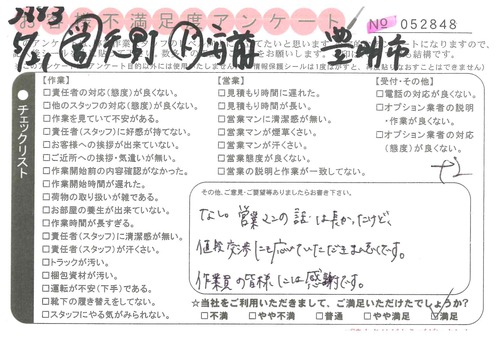 お客様不満足度アンケート
No 052848
豊明市
チェックリスト
【作業】
□責任者の対応(態度)が良くない。
□他のスタッフの対応(態度)が良くない。
□作業を見ていて不安がある。
□責任者(スタッフ)に好感が持てない。
□お客様への挨拶が出来ていない。
□ご近所への挨拶・気遣いが無い。
□作業開始前の内容確認がなかった。
□作業開始時間が遅れた。
□荷物の取り扱いが雑である。
□お部屋の養生が出来ていない。
□作業時間が長すぎる。
□責任者(スタッフ)に清潔感が無い。
□責任者(スタッフ)が汗くさい。
□トラックが汚い。
□梱包資材が汚い。
□運転が不安(下手)である。
□靴下の履き替えをしてない。
□スタッフにやる気がみられない。
【営業】
□見積もり時間に遅れた。
□見積もり時間が長い。
□営業マンに清潔感が無い。
□営業マンが煙草くさい。
□営業マンが汗くさい。
□営業態度が良くない。
□営業の説明と作業が一致してない。
【受付・その他】
□電話の対応が良くない。
□オプション業者の説明
・作業が良くない。
□オプション業者の対応
(態度)が良くない。
その他、ご意見・ご要望等ありましたらお書き下さい。
なし 営業マンの話は長かったけど、
値段交渉にも応じていただきましたので良いです。
作業員の皆様には感謝です。
☆当社をご利用いただきまして、ご満足いただけたでしょうか?
□不満 □やや不満 □普通 □やや満足 □満足